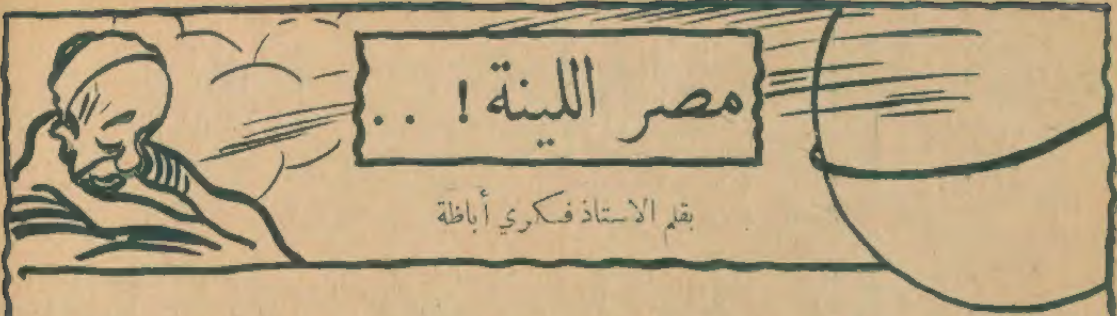 مصر اللينة ! . .
بقلم الاستاذ فكري أباظة